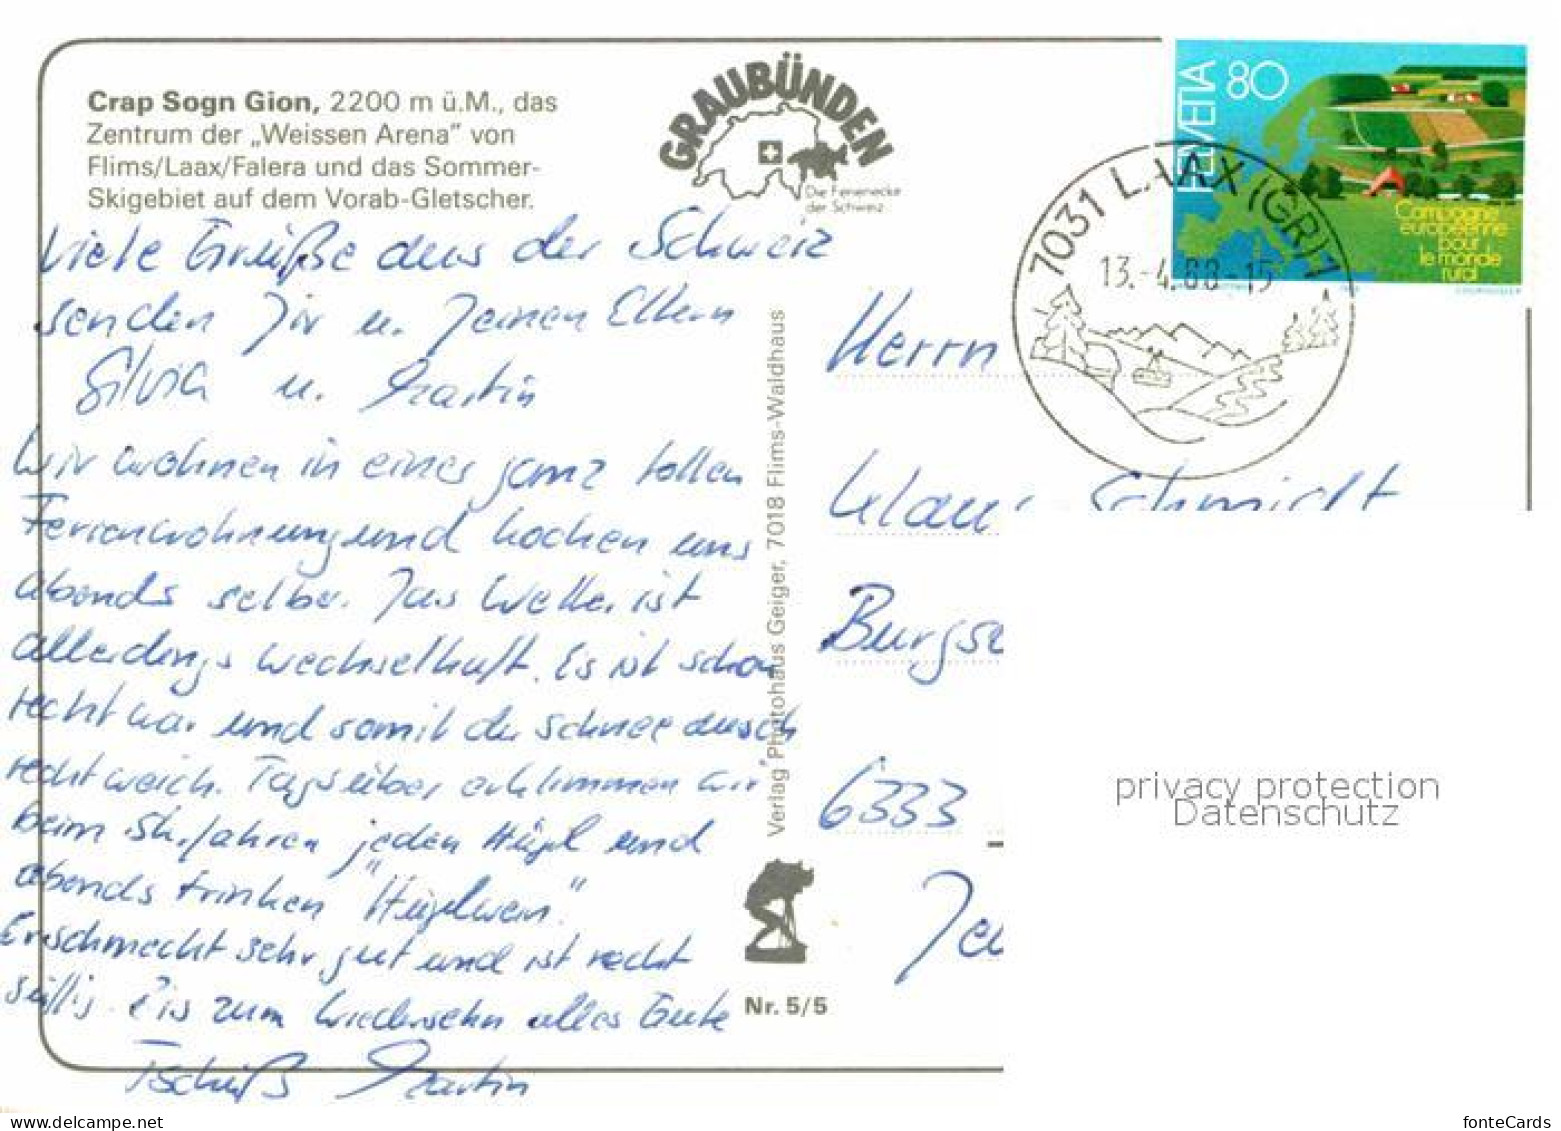 Crap Sogn Gion, 2200 m ü.M., das
Zentrum der „Weissen Arena" von
Flims/Laax/Falera und das Sommer-
Skigebiet auf dem Vorab-Gletscher.
GRAUBÜNDEN
Die Ferienecke
der Schweiz
HELVETIA 80
Campagne
européenne
pour
le monde
rural
COURVOISIER
7031 LAAX (GR) 1
13.-4.88-15
Viele Grüße aus der Schweiz
senden Dir u. Deinen Eltern
Silvia u. Martin
Wir wohnen in einer ganz tollen
Ferienwohnung und kochen uns
abends selber. Das Wetter ist
allerdings wechselhaft. Es ist schon
recht war und somit der Schnee auch
recht weich. Tagsüber erklimmen wir
beim Skifahren jeden Hügel und
abends trinken "Hügelwein."
Er schmeckt sehr gut und ist recht
süffig. Bis zum Wiedersehn alles Gute
Tschüß Martin
Verlag Photohaus Geiger, 7018 Flims-Waldhaus
Nr. 5/5
Herrn
Klaus Schmidt
Burgs
6333
privacy protection
Datenschutz
fonteCards
www.delcampe.net